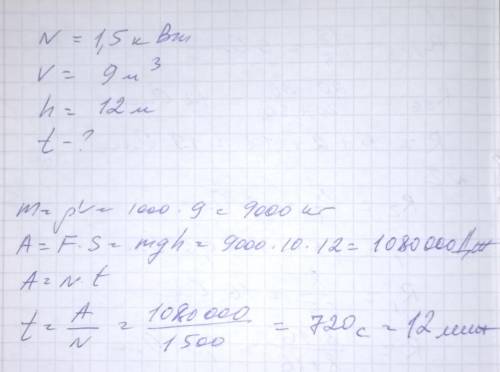 N = 1,5 кВт
V = 9 м³
h = 12 м
t - ?
m = ρV = 1000 · 9 = 9000 кг
A = F · S = mgh = 9000 · 10 · 12 = 1080000 Дж
A = N t
t = A/N = 1080000/1500 = 720 с = 12 мин